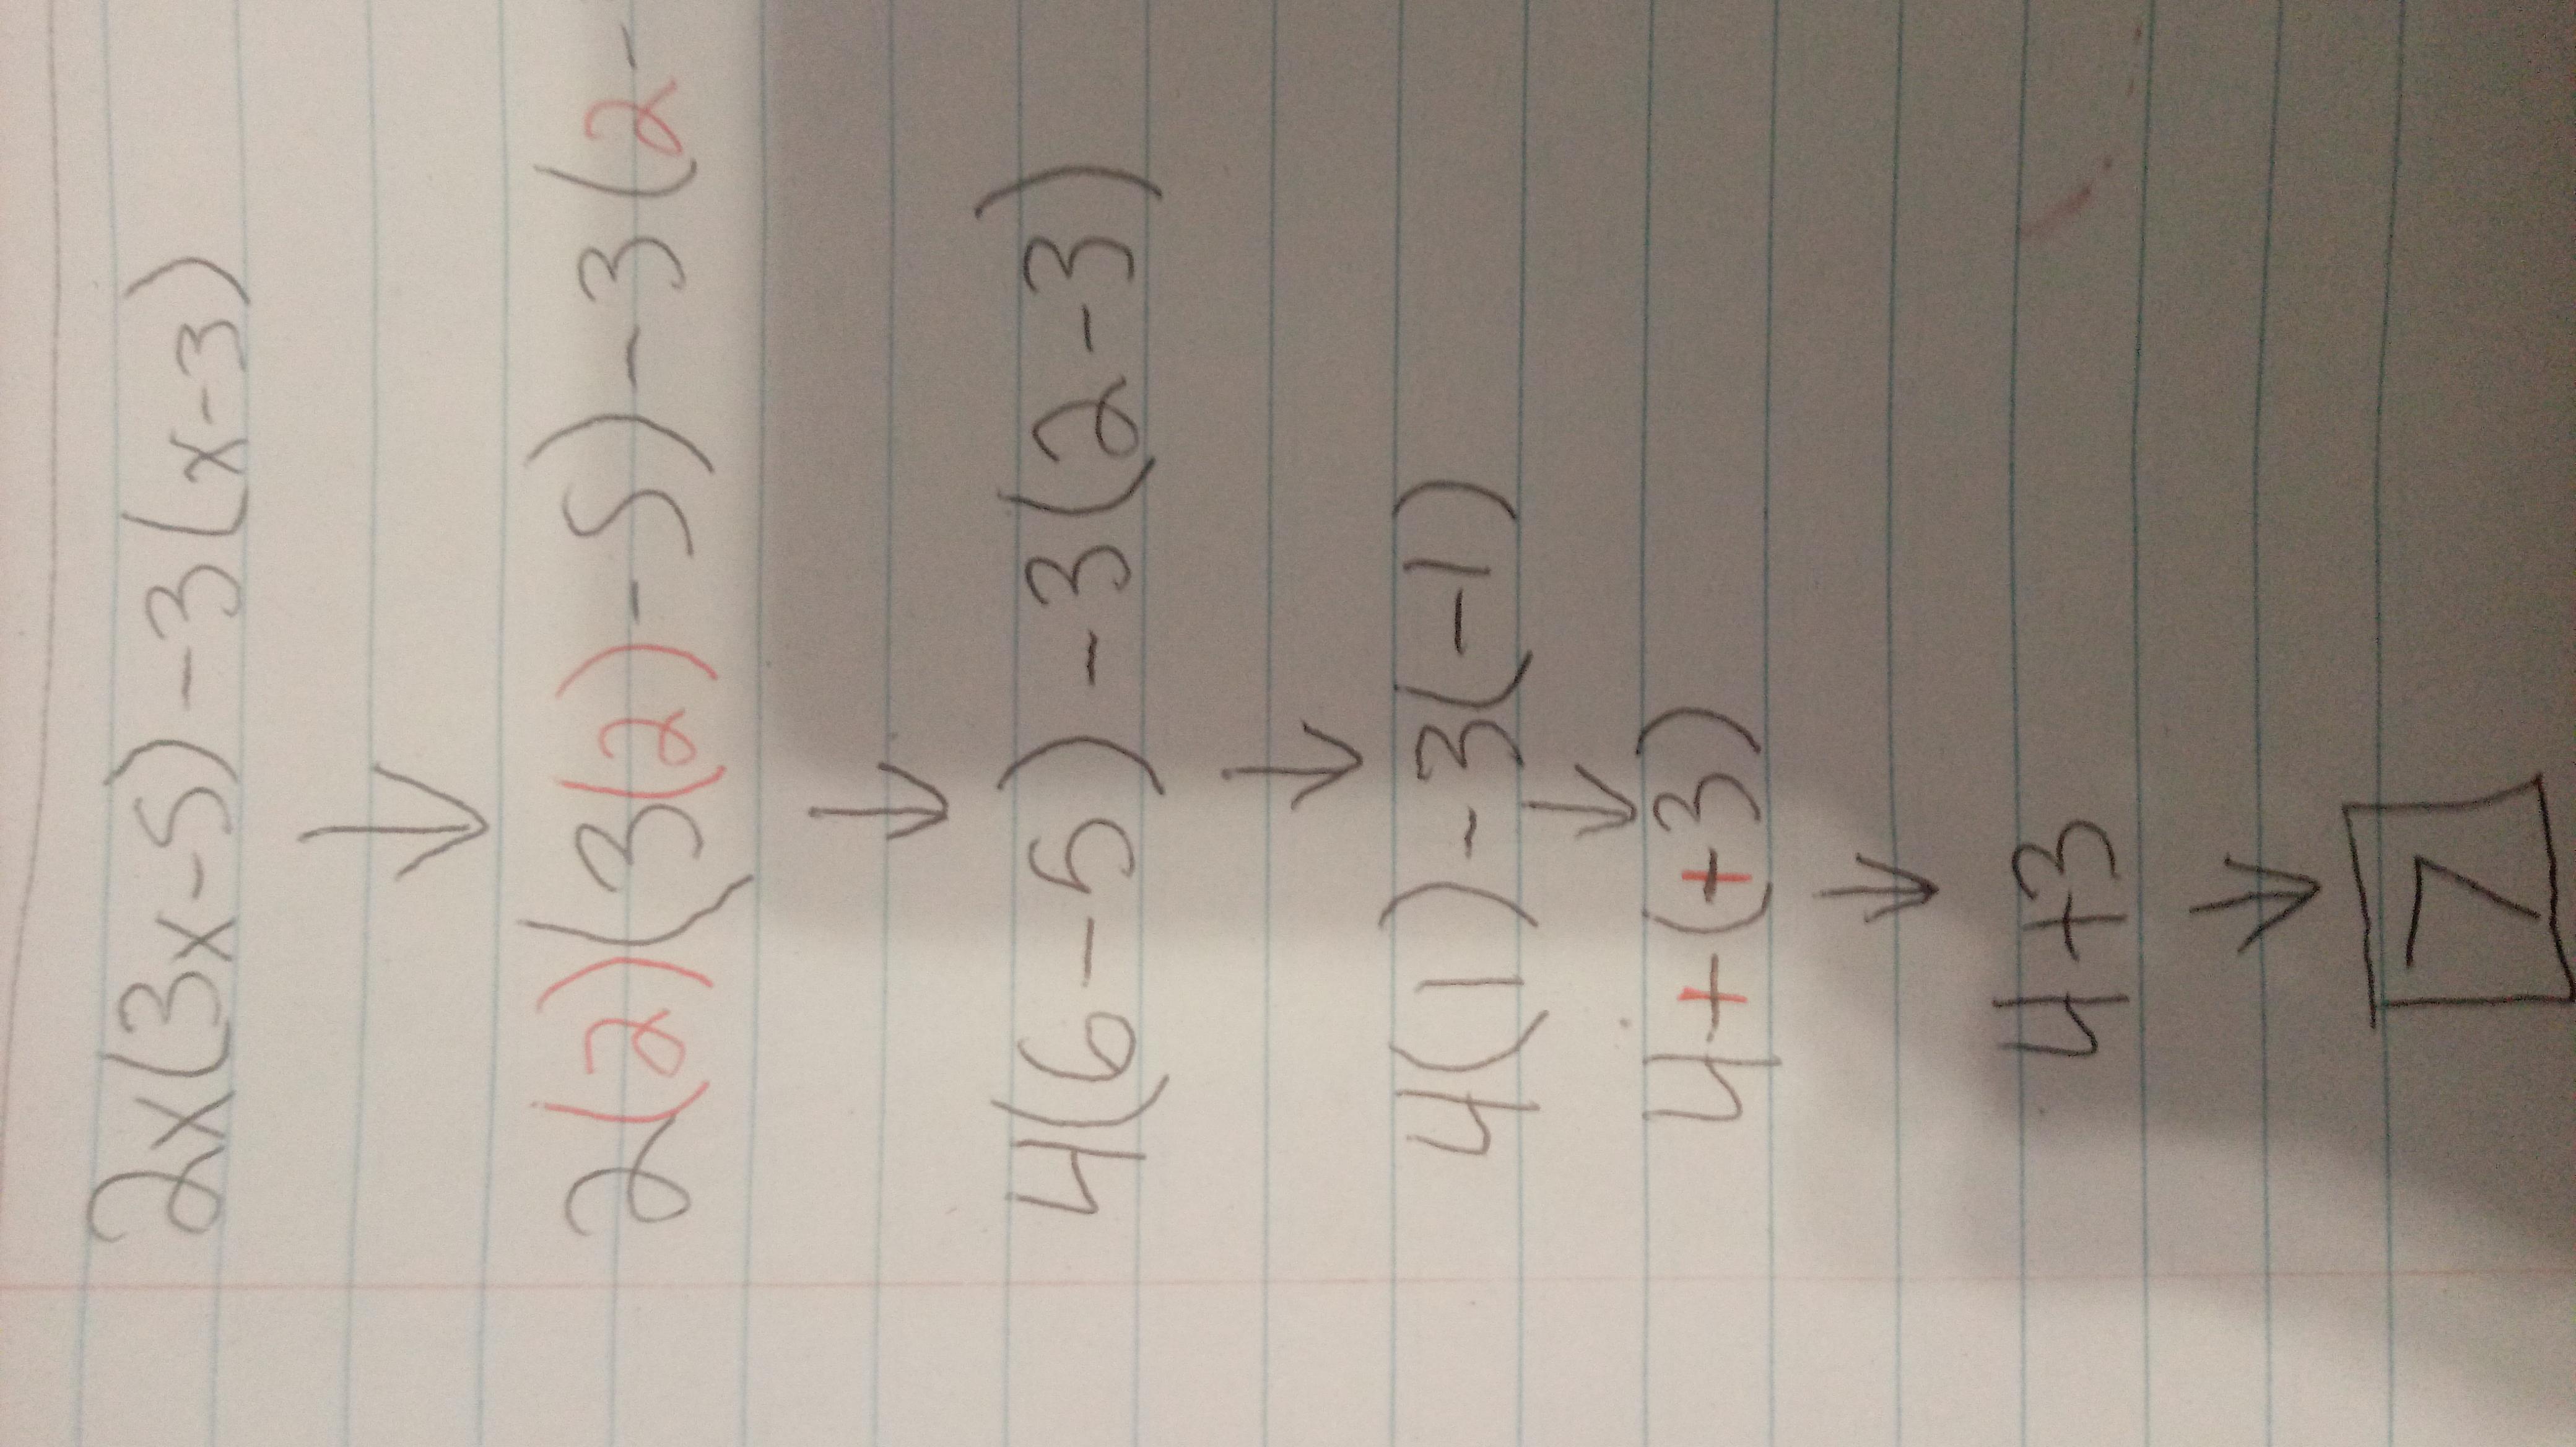 2x(3x-5)-3(x-3)
↓
2(2)(3(2)-5)-3(2-
↓
4(6-5)-3(2-3)
↓
4(1)-3(-1)
↓
4+(+3)
↓
4+3
↓
7